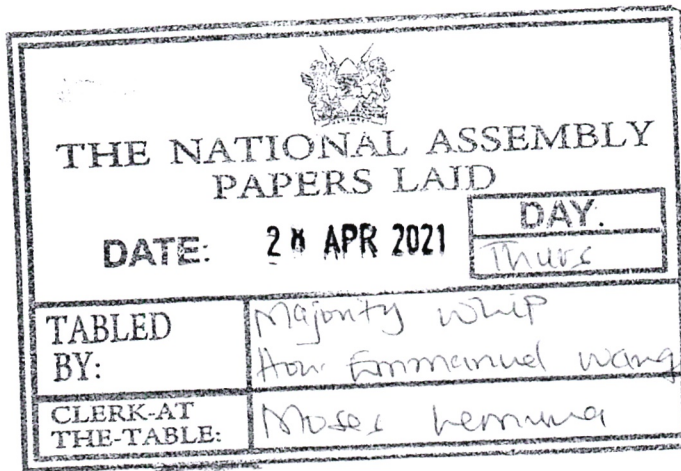 THE NATIONAL ASSEMBLY
PAPERS LAID
DATE: APR 2021
DAY.
Thurs
TABLED BY:
Majority Whip
Hon. Emmanuel Wang
CLERK-AT THE-TABLE:
Moses